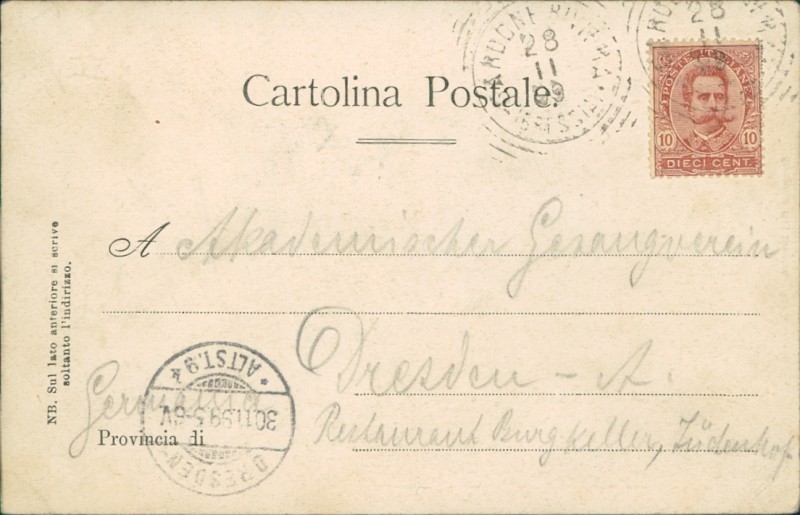 28
11
99
28
11
Cartolina Postale.
POSTE ITALIANE
10 10
DIECI CENT.
A Akademischer Gesangverein
Dresden - A.
Germania
Provincia di
Restaurant Burgkeller, Jüdenhof
NB. Sul lato anteriore si scrive
soltanto l'indirizzo.
* ALTST. 9 *
30.11.99.5-6V.
DRESDEN